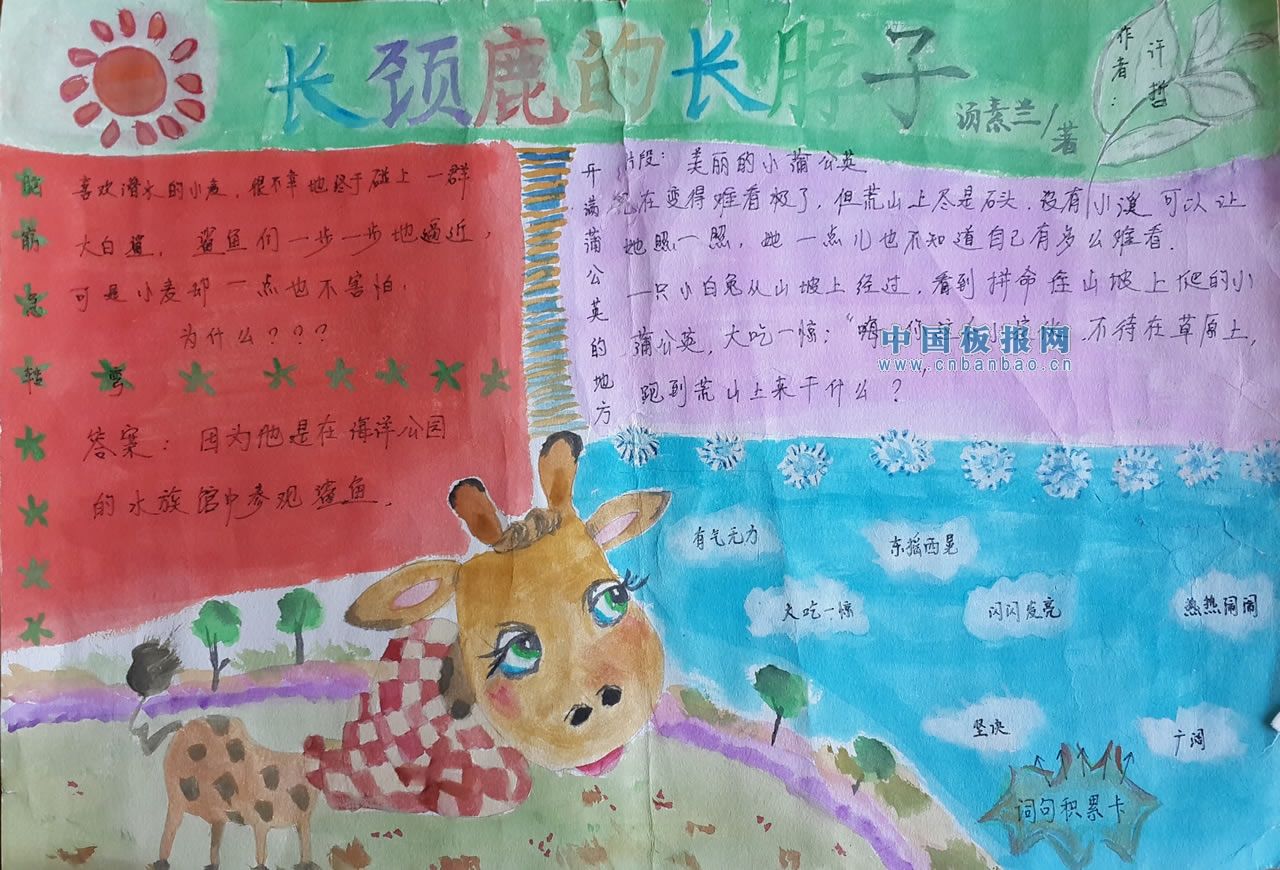 长颈鹿的长脖子
汤素兰/著
作者：
许哲
喜欢潜水的小麦，很不幸地终于碰上一群
大白鲨，鲨鱼们一步一步地逼近，
可是小麦却一点也不害怕，
为什么？？？
答案：因为他是在海洋公园
的水族馆中参观鲨鱼．
开满蒲公英的地方
片段：美丽的小蒲公英
现在变得难看极了，但荒山上尽是石头，没有小溪可以让
她照一照，她一点儿也不知道自己有多么难看．
一只小白兔从山坡上经过，看到拼命往山坡上爬的小
蒲公英，大吃一惊：“嗨，你 不待在草原上，
跑到荒山上来干什么？
中国板报网
www.cnbanbao.cn
有气无力
东摇西晃
大吃一惊
闪闪发亮
热热闹闹
坚决
广阔
词句积累卡